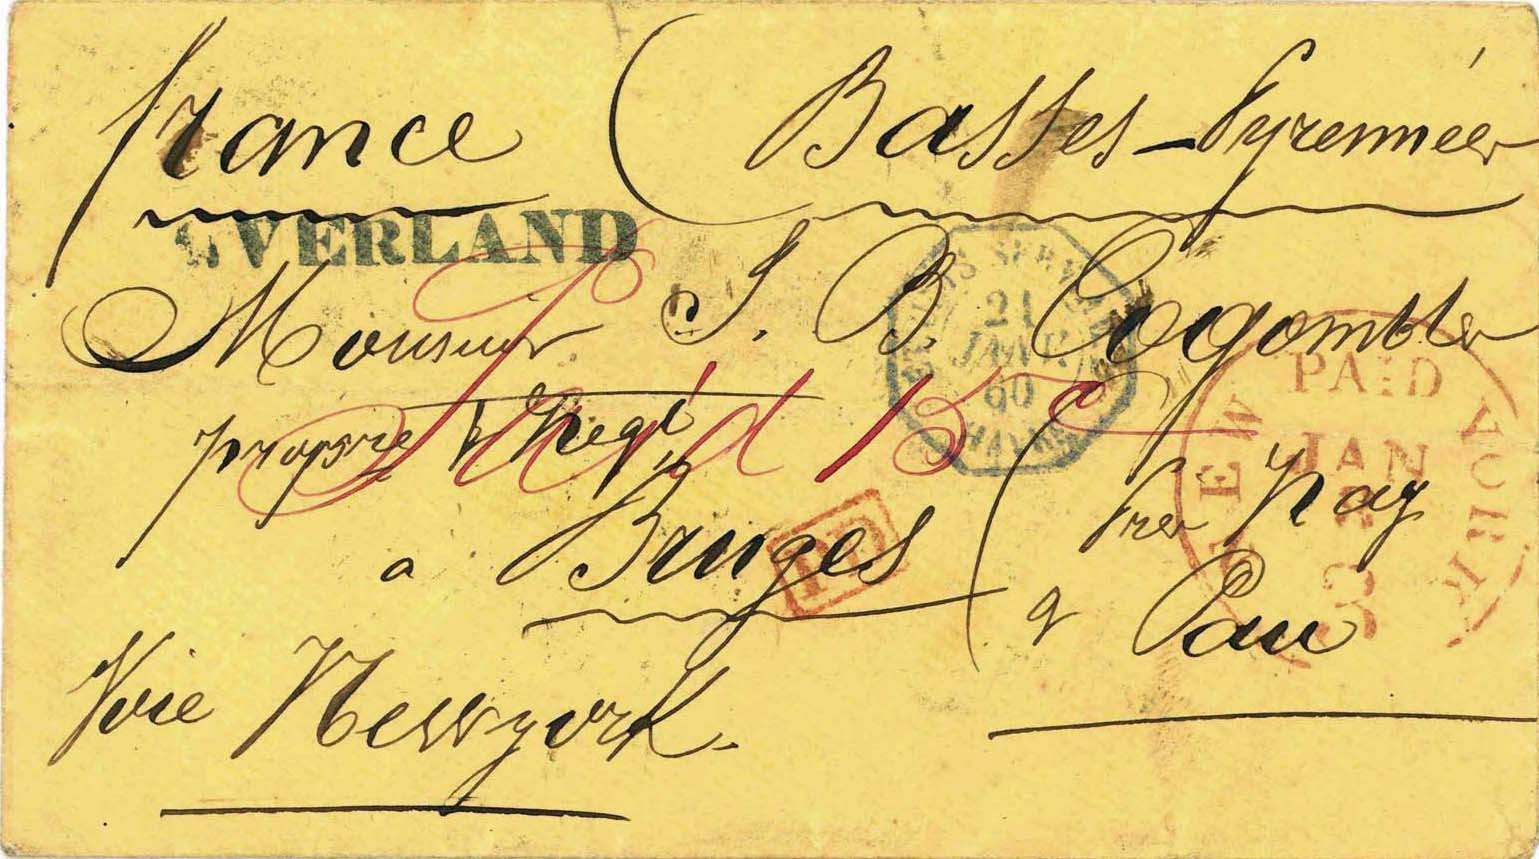 france ( Basses-Pyrennées
OVERLAND
Monsieur J. B. Cogombles
propre à
Paid 15
à Bruges ( près Nay
PD
à Pau
Voie Newyork.
21
JANV.
60
HAVRE
NEW YORK
PAID
JAN